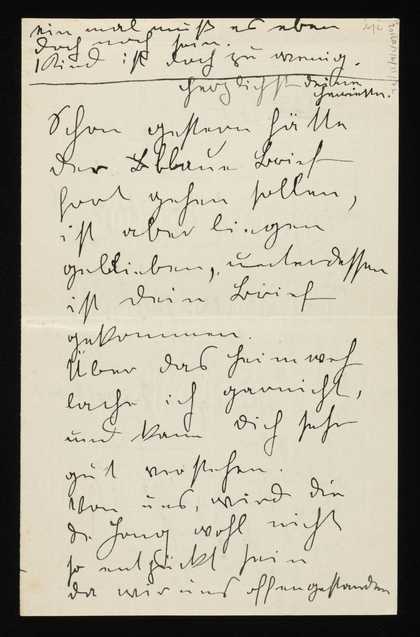 ein mal muß es eben
doch noch sein.
1 Kind ist doch zu wenig.
herzlichst deine
Henriette.
Schon gestern hätte
der blaue Brief
fort gehen sollen,
ist aber liegen
geblieben, unterdessen
ist dein Brief
gekommen.
Über das Heimweh
lache ich garnicht,
und kann dich sehr
gut verstehen.
Von uns, wird die
de Jong wohl nicht
so entzückt sein
da wir uns offengestanden